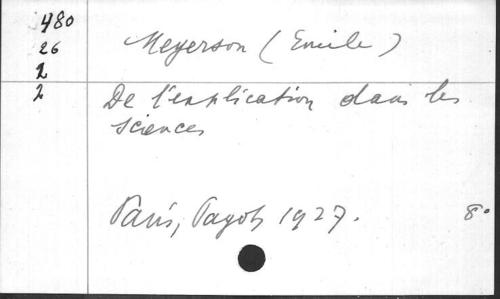 480
26
2
2
Meyerson (Emile)
De l'explication dans les
sciences
Paris, Payot 1927.
8°